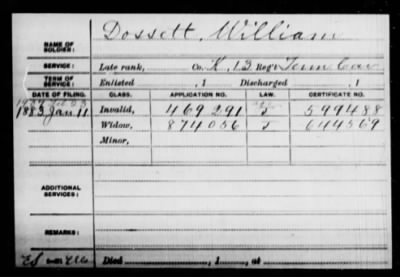 Dossett, William
NAME OF SOLDIER:
SERVICE: Late rank, Co. K, 13 Reg't Tenn Cav
TERM OF SERVICE: Enlisted , 1 Discharged , 1
DATE OF FILING. CLASS. APPLICATION NO. LAW. CERTIFICATE NO.
1883 Jan 11 Invalid, 469 291 599488
Widow, 874056 644569
Minor,
ADDITIONAL SERVICES:
REMARKS:
Died , 1 , at